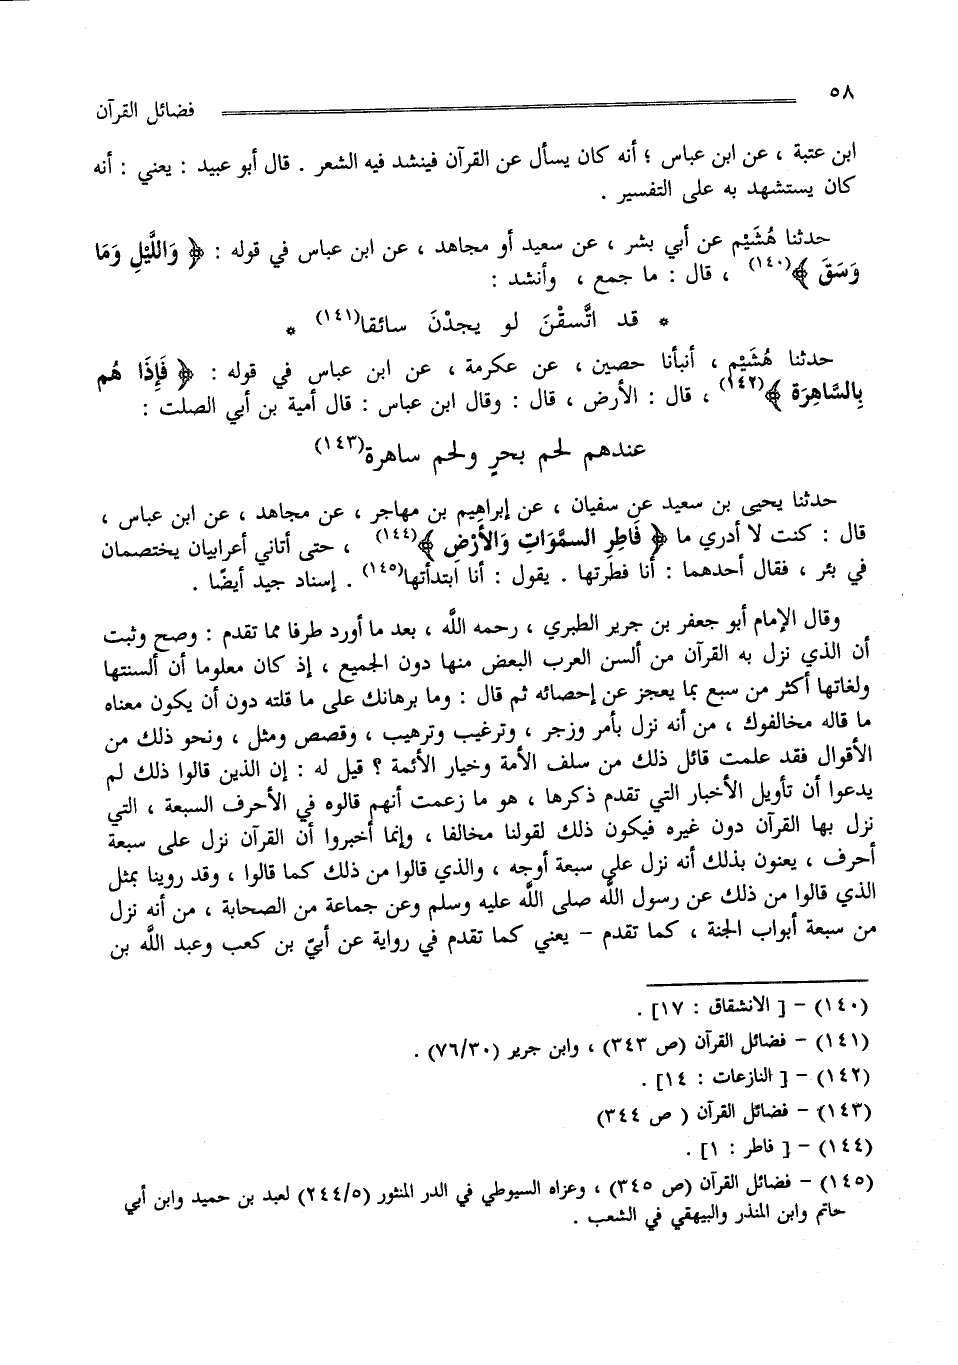 ٥٨
فضائل القرآن
ابن عتبة ، عن ابن عباس ؛ أنه كان يسأل عن القرآن فينشد فيه الشعر . قال أبو عبيد : يعني : أنه
كان يستشهد به على التفسير .
حدثنا هُشَيْم عن أبي بشر ، عن سعيد أو مجاهد ، عن ابن عباس في قوله : ﴿ وَاللَّيْلِ وَمَا
وَسَقَ ﴾(١٤٠) ، قال : ما جمع ، وأنشد :
* قد اتَّسقْنَ لو يجدْنَ سائقا(١٤١) *
حدثنا هُشَيْم ، أنبأنا حصين ، عن عكرمة ، عن ابن عباس في قوله : ﴿ فَإِذَا هُم
بِالسَّاهِرَة ﴾(١٤٢) ، قال : الأرض ، قال : وقال ابن عباس : قال أمية بن أبي الصلت :
عندهم لحم بحرٍ ولحم ساهرة(١٤٣)
حدثنا يحيى بن سعيد عن سفيان ، عن إبراهيم بن مهاجر ، عن مجاهد ، عن ابن عباس ،
قال : كنت لا أدري ما ﴿ فَاطِرِ السمَّوَاتِ وَالأَرْضِ ﴾(١٤٤) ، حتى أتاني أعرابيان يختصمان
في بئر ، فقال أحدهما : أنا فطرتها . يقول : أنا ابتدأتها(١٤٥) . إسناد جيد أيضًا .
وقال الإمام أبو جعفر بن جرير الطبري ، رحمه اللَّه ، بعد ما أورد طرفا مما تقدم : وصح وثبت
أن الذي نزل به القرآن من ألسن العرب البعض منها دون الجميع ، إذ كان معلوما أن ألسنتها
ولغاتها أكثر من سبع بما يعجز عن إحصائه ثم قال : وما برهانك على ما قلته دون أن يكون معناه
ما قاله مخالفوك ، من أنه نزل بأمر وزجر ، وترغيب وترهيب ، وقصص ومثل ، ونحو ذلك من
الأقوال فقد علمت قائل ذلك من سلف الأمة وخيار الأئمة ؟ قيل له : إن الذين قالوا ذلك لم
يدعوا أن تأويل الأخبار التي تقدم ذكرها ، هو ما زعمت أنهم قالوه في الأحرف السبعة ، التي
نزل بها القرآن دون غيره فيكون ذلك لقولنا مخالفا ، وإنما أخبروا أن القرآن نزل على سبعة
أحرف ، يعنون بذلك أنه نزل على سبعة أوجه ، والذي قالوا من ذلك كما قالوا ، وقد روينا بمثل
الذي قالوا من ذلك عن رسول اللَّه صلى اللَّه عليه وسلم وعن جماعة من الصحابة ، من أنه نزل
من سبعة أبواب الجنة ، كما تقدم – يعني كما تقدم في رواية عن أبيّ بن كعب وعبد اللَّه بن
(١٤٠) – [ الانشقاق : ١٧] .
(١٤١) – فضائل القرآن (ص ٣٤٣) ، وابن جرير (٧٦/٣٠) .
(١٤٢) – [ النازعات : ١٤] .
(١٤٣) – فضائل القرآن ( ص ٣٤٤)
(١٤٤) – [ فاطر : ١] .
(١٤٥) – فضائل القرآن (ص ٣٤٥) ، وعزاه السيوطي في الدر المنثور (٢٤٤/٥) لعبد بن حميد وابن أبي
حاتم وابن المنذر والبيهقي في الشعب .